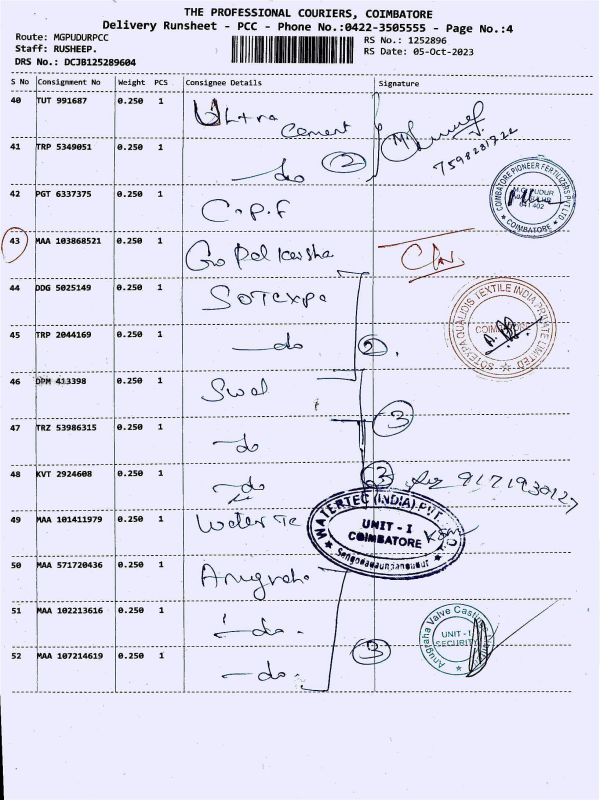 THE PROFESSIONAL COURIERS, COIMBATORE
Delivery Runsheet - PCC - Phone No.:0422-3505555 - Page No.:4
Route: MGPUDURPCC
RS No.: 1252896
Staff: RUSHEEP.
RS Date: 05-Oct-2023
DRS No.: DCJB125289604
S No Consignment No Weight PCS Consignee Details Signature
40 TUT 991687 0.250 1 Ultra Cement
7598281722
41 TRP 5349051 0.250 1 -do 2
42 PGT 6337375 0.250 1 C.P.F
COIMBATORE PIONEER FERTILIZERS PVT LTD
641 402
COIMBATORE
43 MAA 103868521 0.250 1 Gopal
44 DDG 5025149 0.250 1 SOTEXPA
SOTEXPA QUALIDIS TEXTILE INDIA PRIVATE LIMITED
45 TRP 2044169 0.250 1 -do 2.
46 DPM 413398 0.250 1
3
47 TRZ 53986315 0.250 1 -do
48 KVT 2924608 0.250 1 -do 3 9171930127
49 MAA 101411979 0.250 1 Water Te
WATERTEC (INDIA) PVT.
UNIT - I
COIMBATORE
50 MAA 571720436 0.250 1 Anugraha
51 MAA 102213616 0.250 1 -do.
Anugraha Valve
UNIT - I
SECURITY
52 MAA 107214619 0.250 1 -do. 3